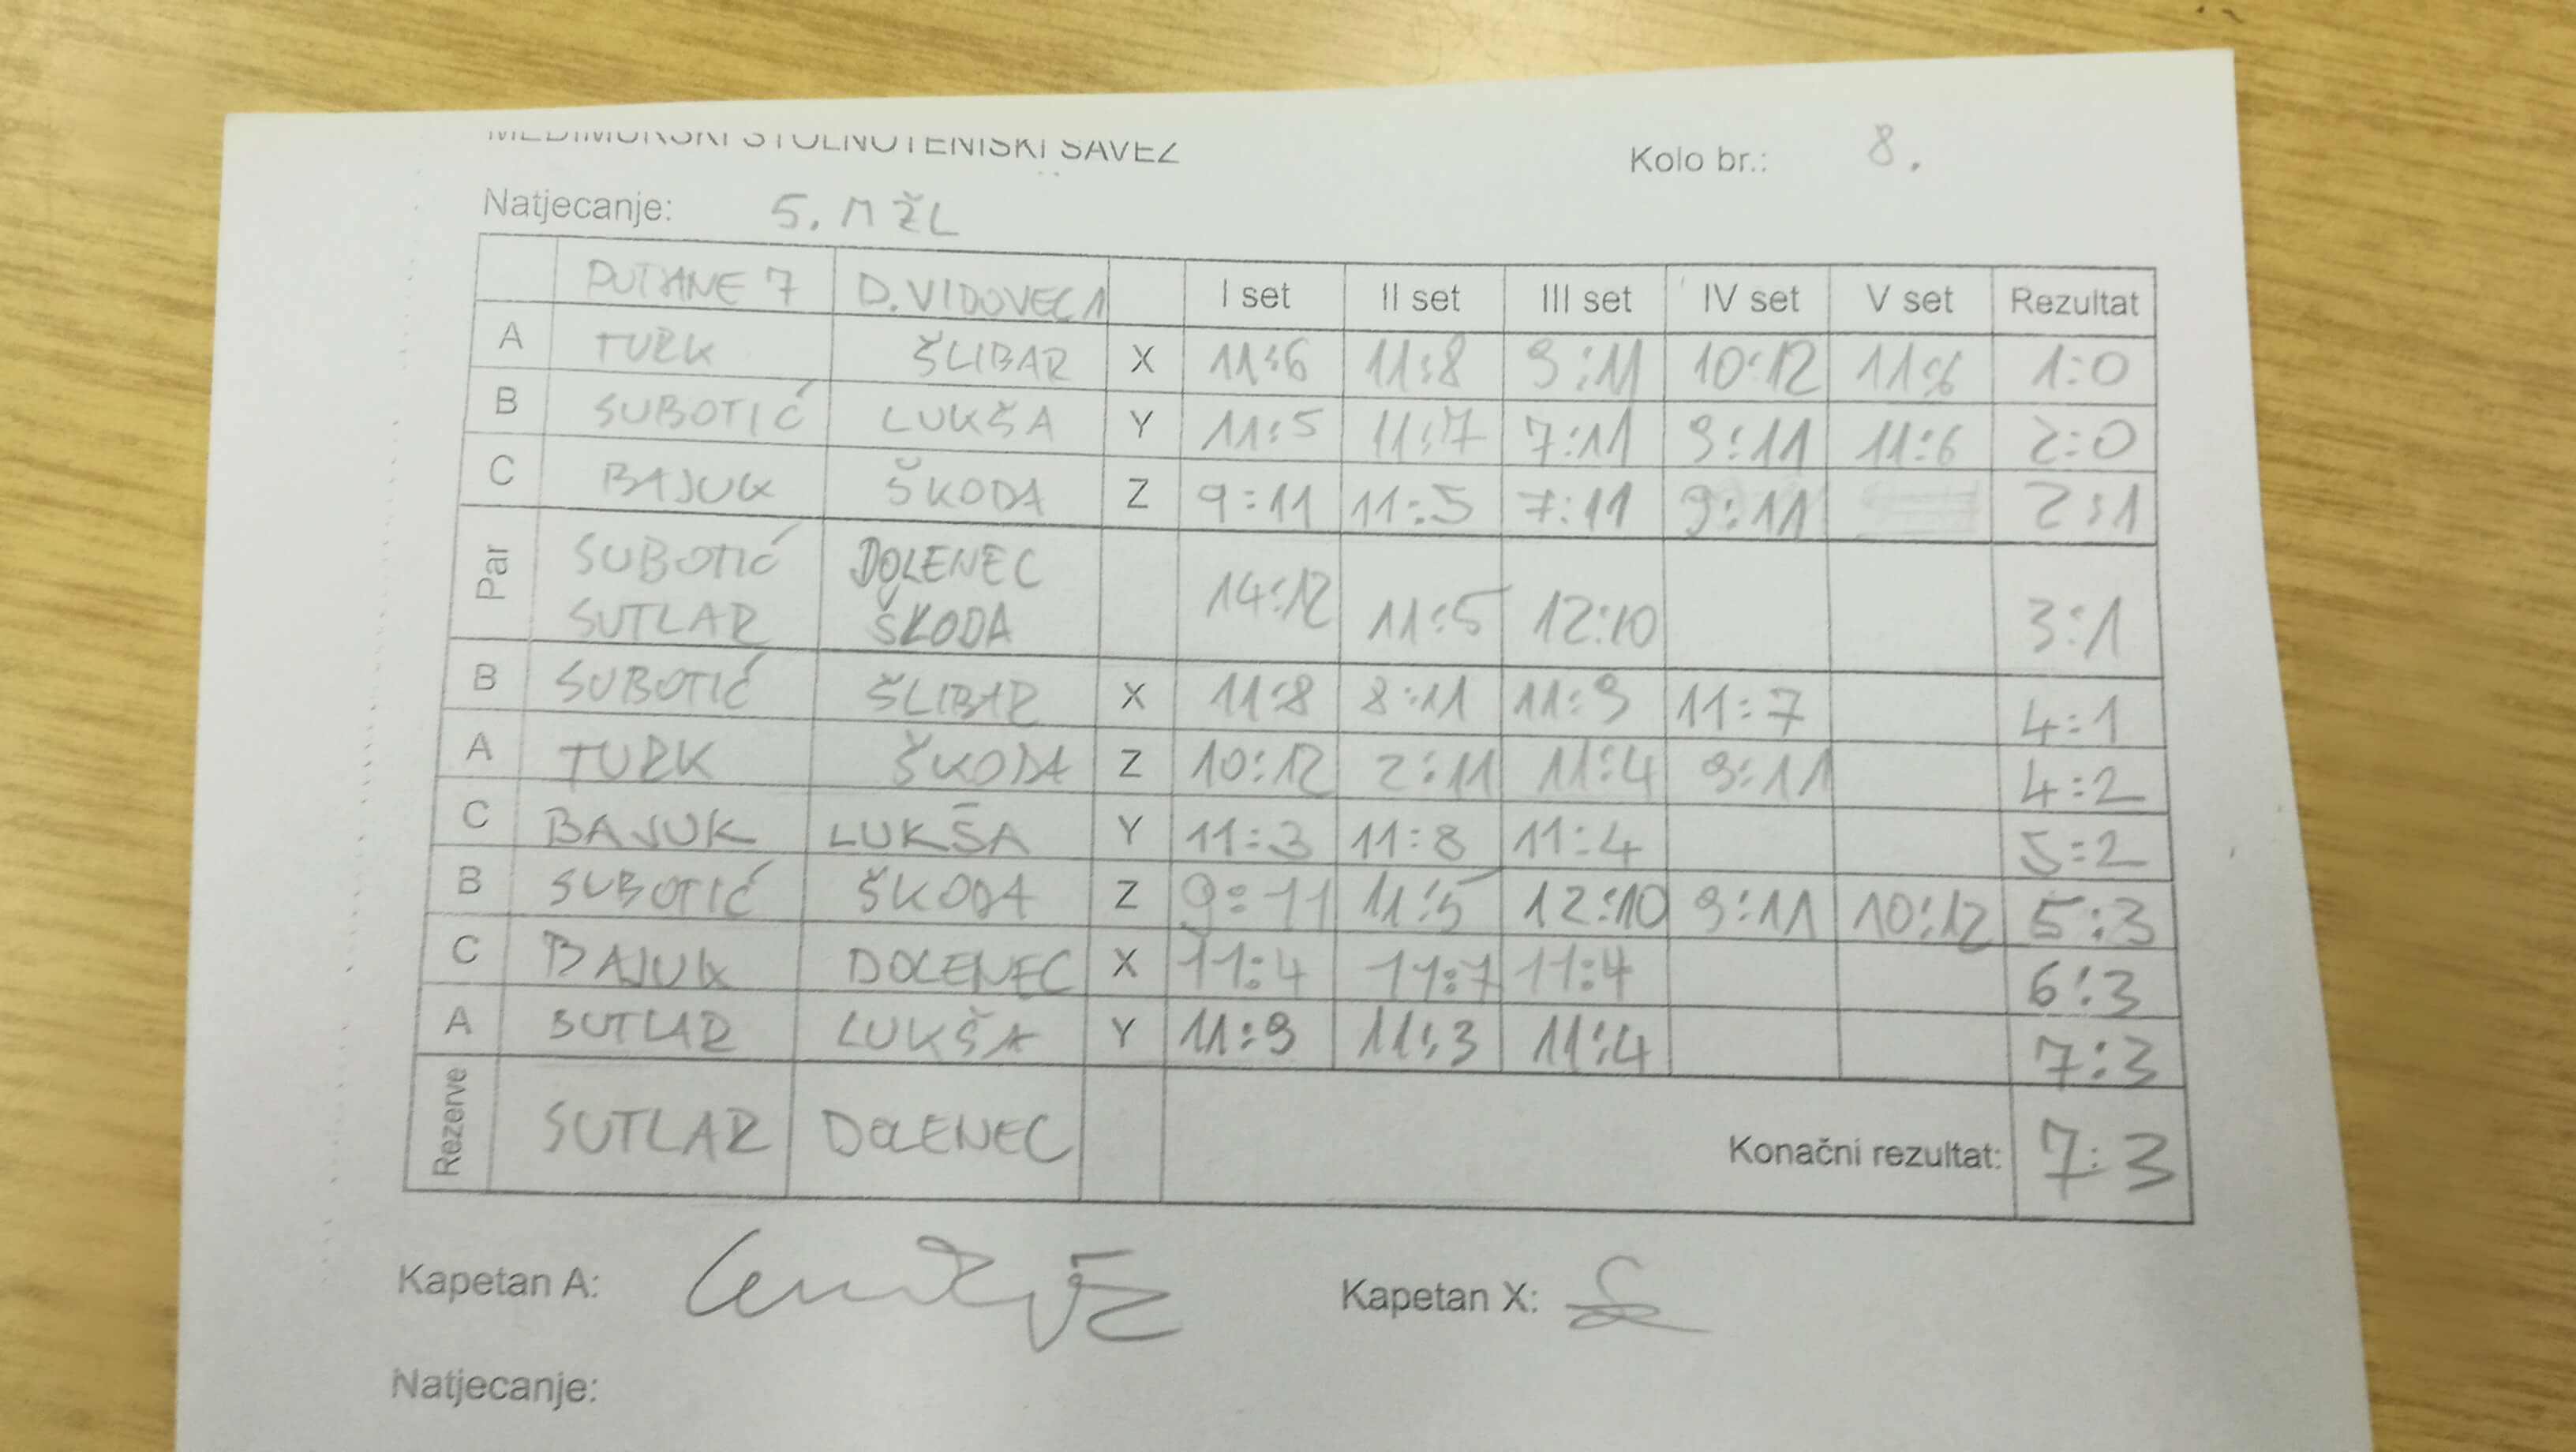 MEĐIMURSKI STOLNOTENISKI SAVEZ
Kolo br.: 8.
Natjecanje: 5. MŽL
PUTJANE 7 D. VIDOVEC 1 I set II set III set IV set V set Rezultat
A TURK ŠLIBAR X 11:6 11:8 9:11 10:12 11:6 1:0
B SUBOTIĆ LUKŠA Y 11:5 11:7 7:11 9:11 11:6 2:0
C BAJUK ŠKODA Z 9:11 11:5 7:11 9:11 2:1
Par SUBOTIĆ SUTLAR DOLENEC ŠKODA 14:12 11:5 12:10 3:1
B SUBOTIĆ ŠLIBAR X 11:8 8:11 11:9 11:7 4:1
A TURK ŠKODA Z 10:12 2:11 11:4 9:11 4:2
C BAJUK LUKŠA Y 11:3 11:8 11:4 5:2
B SUBOTIĆ ŠKODA Z 9:11 11:5 12:10 9:11 10:12 5:3
C BAJUK DOLENEC X 11:4 11:7 11:4 6:3
A SUTLAR LUKŠA Y 11:9 11:3 11:4 7:3
Rezerve SUTLAR DOLENEC Konačni rezultat: 7:3
Kapetan A: Kapetan X:
Natjecanje: